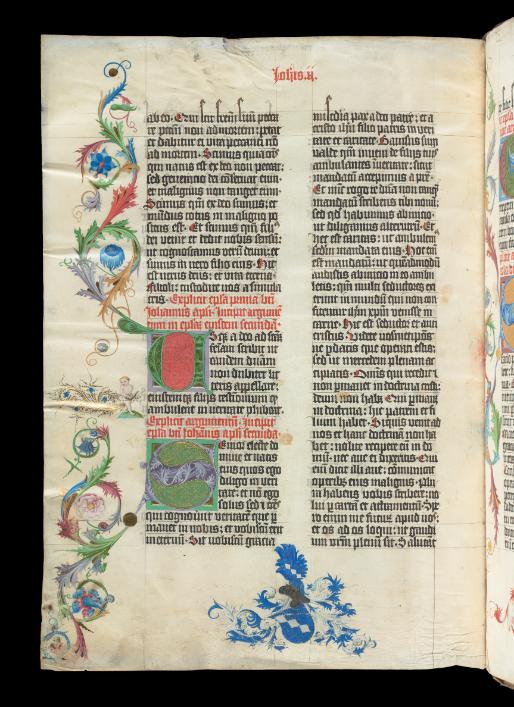 Johis.ij.
ab eo. Qui scit frēm suū pecca-
re pctm̄ non ad mortem: petat
et dabitur ei vita peccanti nō
ad mortem. Scimus quia oīs
qui natus est ex deo non peccat:
sed generatio dei cōservat eum:
et malignus non tanget eum.
Scimus qm̄ ex deo sumus: et
mūdus totus in maligno po-
situs est. Et scimus qm̄ filius
dei venit et dedit nobis sensū:
ut cognoscamus verū deum: et
simus in vero filio eius. Hic
est verus deus: et vita eterna.
Filioli: custodite vos a simula-
cris. Explicit epl̄a prima bti
Johannis apli. Incipit argumē-
tum in epl̄am eiusdem secundā.
Usq̄ adeo ad sāctā
feminam scribit ut
eandem dnām
non dubitet lit-
teris appellare:
eiusdemq̄ filijs testimoniū q̄
ambulent in veritate phibet.
Explicit argumentum. Incipit
epl̄a bti Johānis apli secunda.
Senior electe do-
mine et natis
eius quos ego
diligo in veri-
tate: et nō ego
solus sed et oēs
qui cognoverūt veritatē que p-
manet in vobis: et vobiscū erit
in eternū. Sit vobiscū gracia
misedia pax a deo patre: et a
cristo ihū filio patris in veri-
tate et caritate. Gavisus sum
valde qm̄ inveni de filijs tuis
ambulantes in veritate: sicut
mandatū accepimus a patre.
Et nūc rogo te dn̄a non tanq̄
mandatū scribens tibi novū:
sed qd̄ habuimus ab inicio:
ut diligamus alterutrū. Et
hec est caritas: ut ambulem9
scdm̄ mandata eius. Hoc eī
est mandatū: ut quēadmodū
audistis ab inicio in eo ambu-
letis: qm̄ multi seductores ex-
ierunt in mundū qui non con-
fitentur ihm̄ xpm̄ venisse in
carne. Hic est seductor et anti-
cristus. Videte vosmetipsos:
ne p̄datis que operati estis:
sed ut mercedem plenam ac-
cipiatis. Omīs qui recedit et
non pmanet in doctrina cristi:
deum non habet. Qui pmanet
in doctrina: hic patrem et fi-
lium habet. Si quis venit ad
vos et hanc doctrinā non ha-
bet: nolite recipere eū in do-
mū: nec ave ei dixeritis. Qui
enī dicit illi ave: cōmunicat
operib; eius malignis. Plu-
ra habens vobis scribere: no-
lui p cartā et atramentū. Spe-
ro enim me futurū apud vos:
et os ad os loqui: ut gaudi-
um vrm̄ plenū sit. Salutāt